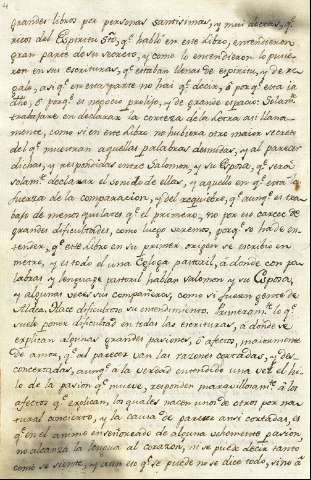 grandes libros por personas santissimas, y mui doctas, q.e
ricos del Espiritu Sto, q.e habló en este libro, entendieron
gran parte de su secreto, y como lo entendieron lo pusie-
ron en sus escrituras, q.e estàn llenas de espiritu, y de re-
galo, assi q.e en esta parte no hai q.e decir, ò porq.e esta ia
dho, ò porq.e es negocio prolijo, y de grande espacio: Solam.te
trabajare en declarar la corteza de la letra assi llana-
mente, como si en este Libro no hubiera otro maior secreto
del q.e muestran aquellas palabras desnudas, y al parecer
dichas, y respondidas entre Salomon, y su Esposa, q.e serà
solam.te declarar el sonido de ellas, y aquello en q.e està la
fuerza de la comparacion, y del requiebro, q.e aunq.e es tra-
bajo de menos quilates q.e el primero, no por eso carece de
grandes dificultades, como luego veremos, porq.e se ha de en-
tender, q.e este libro en su primer origen se escribió en
metro, y es todo el una Egloga pastoril, à donde con pa-
labras y lenguaje pastoril hablan Salomon y su Esposa,
y algunas veces sus compañeros, como si fueran gente de
Aldea. Hace dificultoso su entendimiento. Primeram.te lo q.e
suele poner dificultad en todas las escrituras, à donde se
explican algunas grandes pasiones, ò afectos, maiormente
de amor, q.e al parecer van las razones cortadas, y des-
concertadas, aunq.e à la verdad entendido una vez el hi-
lo de la pasion q.e mueve, responden maravillosam.te à los
afectos q.e explican, los quales nacen unos de otros por na-
tural concierto, y la causa de parecer assi cortadas, es
q.e en el animo enseñoreado de alguna vehemente pasion,
no alcanza la lengua al corazon, ni se puede decir tanto
como se siente, y aun eso q.e se puede no se dice todo, sino à